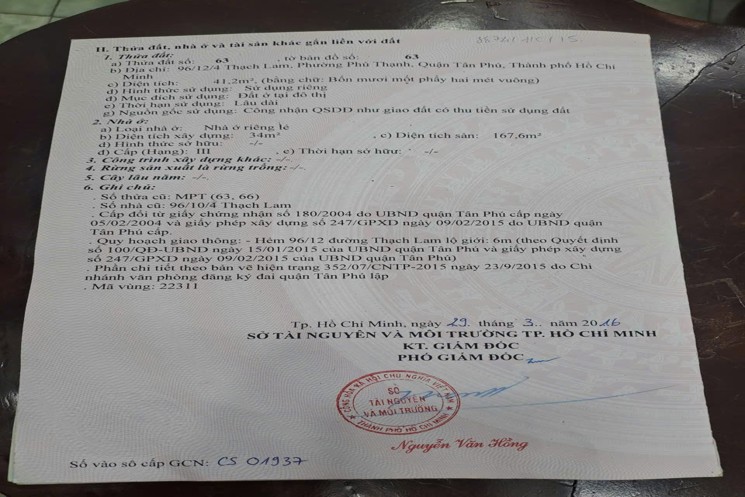 II. Thửa đất, nhà ở và tài sản khác gắn liền với đất
1. Thửa đất:
a) Thửa đất số: 63 , tờ bản đồ số: 63
b) Địa chỉ: 96/12/4 Thạch Lam, Phường Phú Thạnh, Quận Tân Phú, Thành phố Hồ Chí
Minh
c) Diện tích: 41,2m², (bằng chữ: Bốn mươi mốt phẩy hai mét vuông)
d) Hình thức sử dụng: Sử dụng riêng
đ) Mục đích sử dụng: Đất ở tại đô thị
e) Thời hạn sử dụng: Lâu dài
g) Nguồn gốc sử dụng: Công nhận QSDĐ như giao đất có thu tiền sử dụng đất
2. Nhà ở:
a) Loại nhà ở: Nhà ở riêng lẻ
b) Diện tích xây dựng: 34m² , c) Diện tích sàn: 167,6m²
d) Hình thức sở hữu: -/-
đ) Cấp (Hạng): III , e) Thời hạn sở hữu: -/-
3. Công trình xây dựng khác: -/-
4. Rừng sản xuất là rừng trồng: -/-
5. Cây lâu năm: -/-
6. Ghi chú:
. Số thửa cũ: MPT (63, 66)
. Số nhà cũ: 96/10/4 Thạch Lam
. Cấp đổi từ giấy chứng nhận số 180/2004 do UBND quận Tân Phú cấp ngày
05/02/2004 và giấy phép xây dựng số 247/GPXD ngày 09/02/2015 do UBND quận
Tân Phú cấp.
. Quy hoạch giao thông: - Hẻm 96/12 đường Thạch Lam lộ giới: 6m (theo Quyết định
số 100/QĐ-UBND ngày 15/01/2015 của UBND quận Tân Phú và giấy phép xây dựng
số 247/GPXD ngày 09/02/2015 của UBND quận Tân Phú)
. Phần chi tiết theo bản vẽ hiện trạng 352/07/CNTP-2015 ngày 23/9/2015 do Chi
nhánh văn phòng đăng ký đất đai quận Tân Phú lập
. Mã vùng: 22311
Tp. Hồ Chí Minh, ngày 29 tháng 3 năm 2016
SỞ TÀI NGUYÊN VÀ MÔI TRƯỜNG TP. HỒ CHÍ MINH
KT. GIÁM ĐỐC
PHÓ GIÁM ĐỐC
CỘNG HÒA XÃ HỘI CHỦ NGHĨA VIỆT NAM
SỞ
TÀI NGUYÊN
VÀ MÔI TRƯỜNG
THÀNH PHỐ HỒ CHÍ MINH
Nguyễn Văn Hồng
Số vào sổ cấp GCN: CS 01937